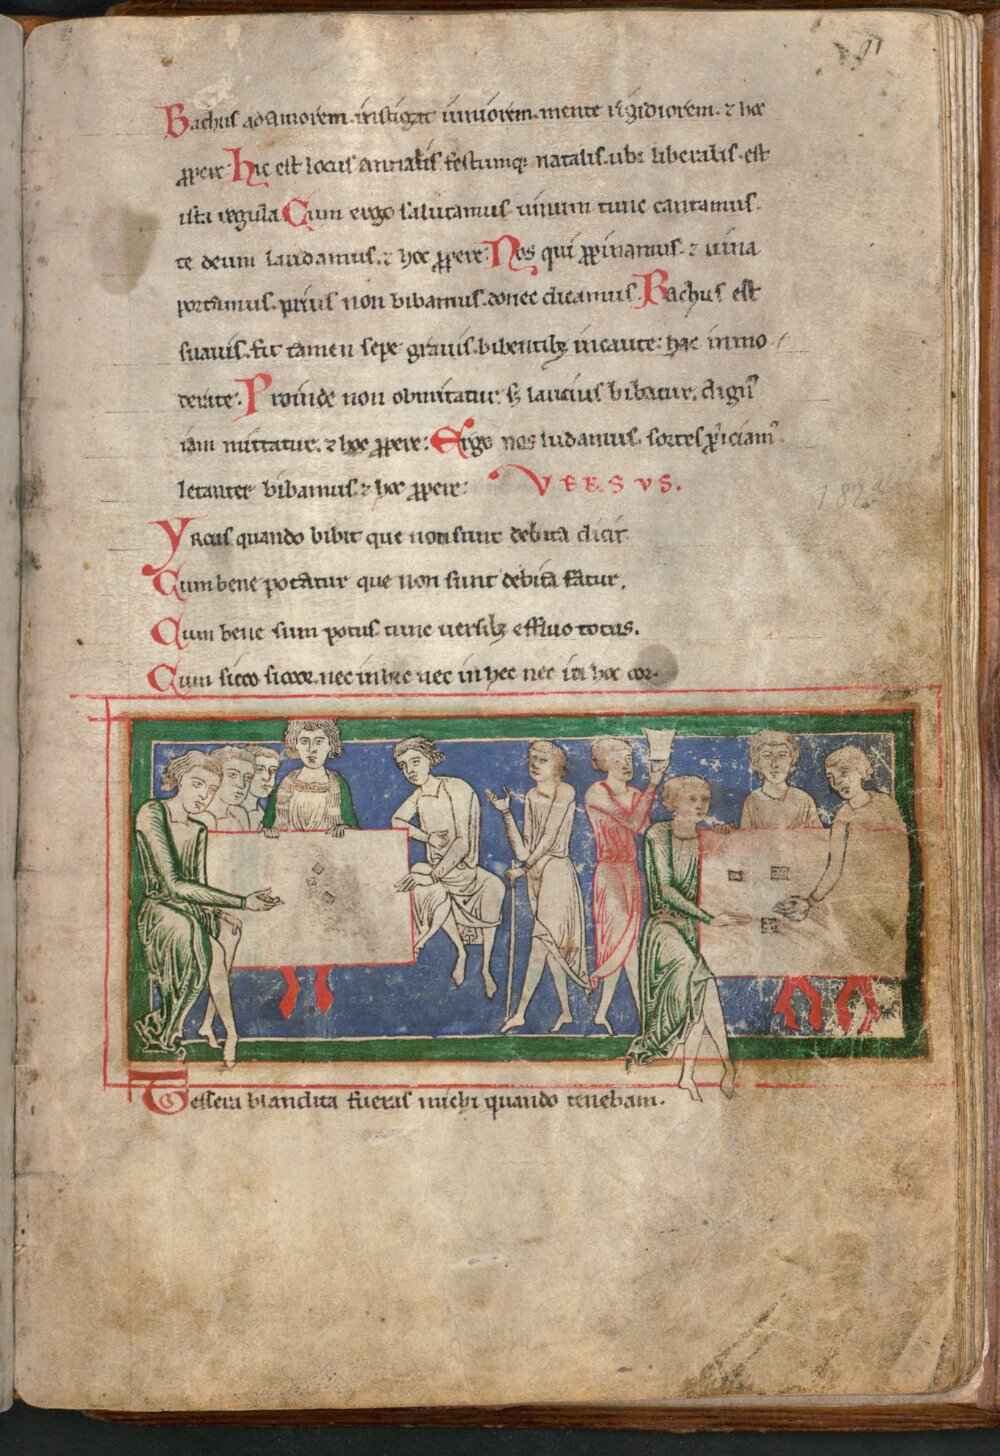 91
Bachus ad amorem. instigat iuniorem. mente rigidiorem. ⁊ hoc
ꝓpere. Hic est locus annalis festumq; natalis. ubi liberalis. est
ista regula Cum ergo salutamus. uinum tunc cantamus.
te deum laudamus. ⁊ hoc ꝓpere. Nos qui ꝓpinamus. ⁊ uina
portamus. prius non bibamus. donec dicamus. Bachus est
suauis. fit tamen sepe grauis. bibentibꝫ incaute. hac inmo
derate. Proinde non obmittatur. sꝫ lautius bibatur.
iam mittatur. ⁊ hoc ꝓpere. Ergo nos ludamus. sortes
letanter bibamus. ⁊ hoc ꝓpere. VERSUS.
Yrcus quando bibit que non sunt debita dicit
Cum bene potatur que non sunt debita fatur.
Cum bene sum potus. tunc uersibꝫ effluo totus.
Cum sicco siccor. nec in hic nec in hec nec in hoc cor.
Tessera blandita fueras michi quando tenebam.